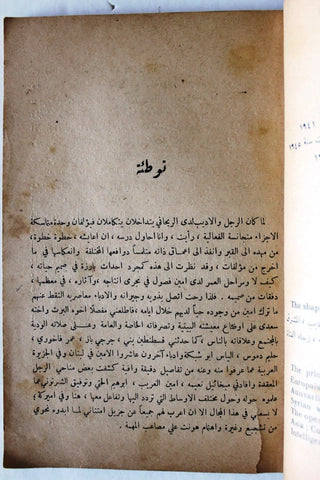 توطئة
لما كان الرجل والاديب لدى الريحاني يتداخلان يتكاملان فيؤلفان وحدة متماسكة
الاجزاء متجانسة الفعالية ، رأيت ، وانا احاول درسه ، ان اعايشه ، خطوة خطوة،
من المهد الى القبر وانفذ الى اعماق ذاته متلمساً دوافعها المختلفة وانعكاسها في ما
اخرج من مؤلفات ، وقد نظرت الى هذه كمجرد احداث بارزة في صميم حياته ،
كيف لا ومراحل العمر لدى امين فصول في مجرى انتاجه وآثاره ، في معظمها ،
دفقات من صميمه . فلذا رحت اتصل بذويه وجيرانه والادباء معاصريه التقط عنهم
ما ترك امين من وجوده حياً لديهم خلال ايامه ، ودفعني فضولاً البحث واتخذه
سعدى على اوضاع معيشته البيتية وتصرفاته الخاصة والعامة وعلى صلاته الودية
بالمجتمع وعلاقاته بالناس . كما حدثني قسطنطين يني، جرجي باز، عمر فاخوري،
حليم دموس، الياس ابو شبكة وادباء آخرون عاشروا الامين في لبنان وفي الجزيرة
العربية بما عرفوا منه وعنه من تفاصيل دقيقة وافية كشفت بعض مناحي الرجل
المعقدة وافادني ميخائيل نعيمه ، امين الغريب، ابرهم الحتي وتوفيق الشرتوني بما
علموه حوله وحول مختلف الاوساط التي تردد اليها وتفاعل معها، هنا وفي اميركا،
لا يسعني في هذا المجال الا ان اعرب لهم جميعاً عن جزيل امتناني لما ابدوه نحوي
من تشجيع وغيرة واهتمام هونت علي مصاعب المهمة .
١٩٤١
سنة ١٩٤٥
The shap
The prin
Europais
Annuatio
Syrian w
The oper
Asia: Co
Intelligen